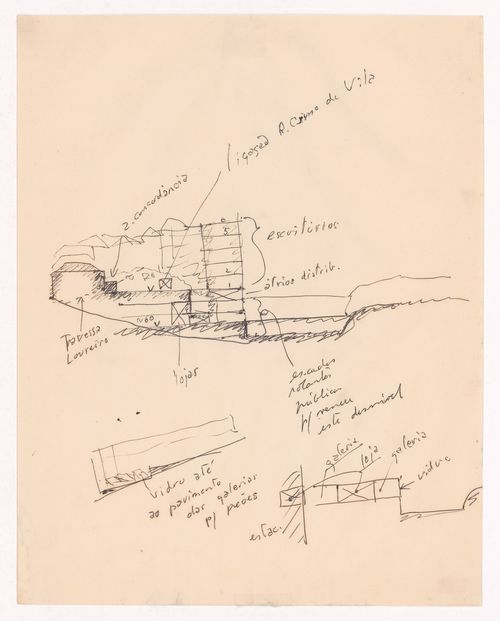 ligação R. Cimo de Vila
z. concordância
escritórios
6
5
2
1
átrios distrib.
Travessa
Loureiro
lojas
escadas
rolantes
públicas
p/ vencer
este desnível
vidro até
ao pavimento
das galerias
p/ peões
galeria
loja
galeria
vidro
estac.